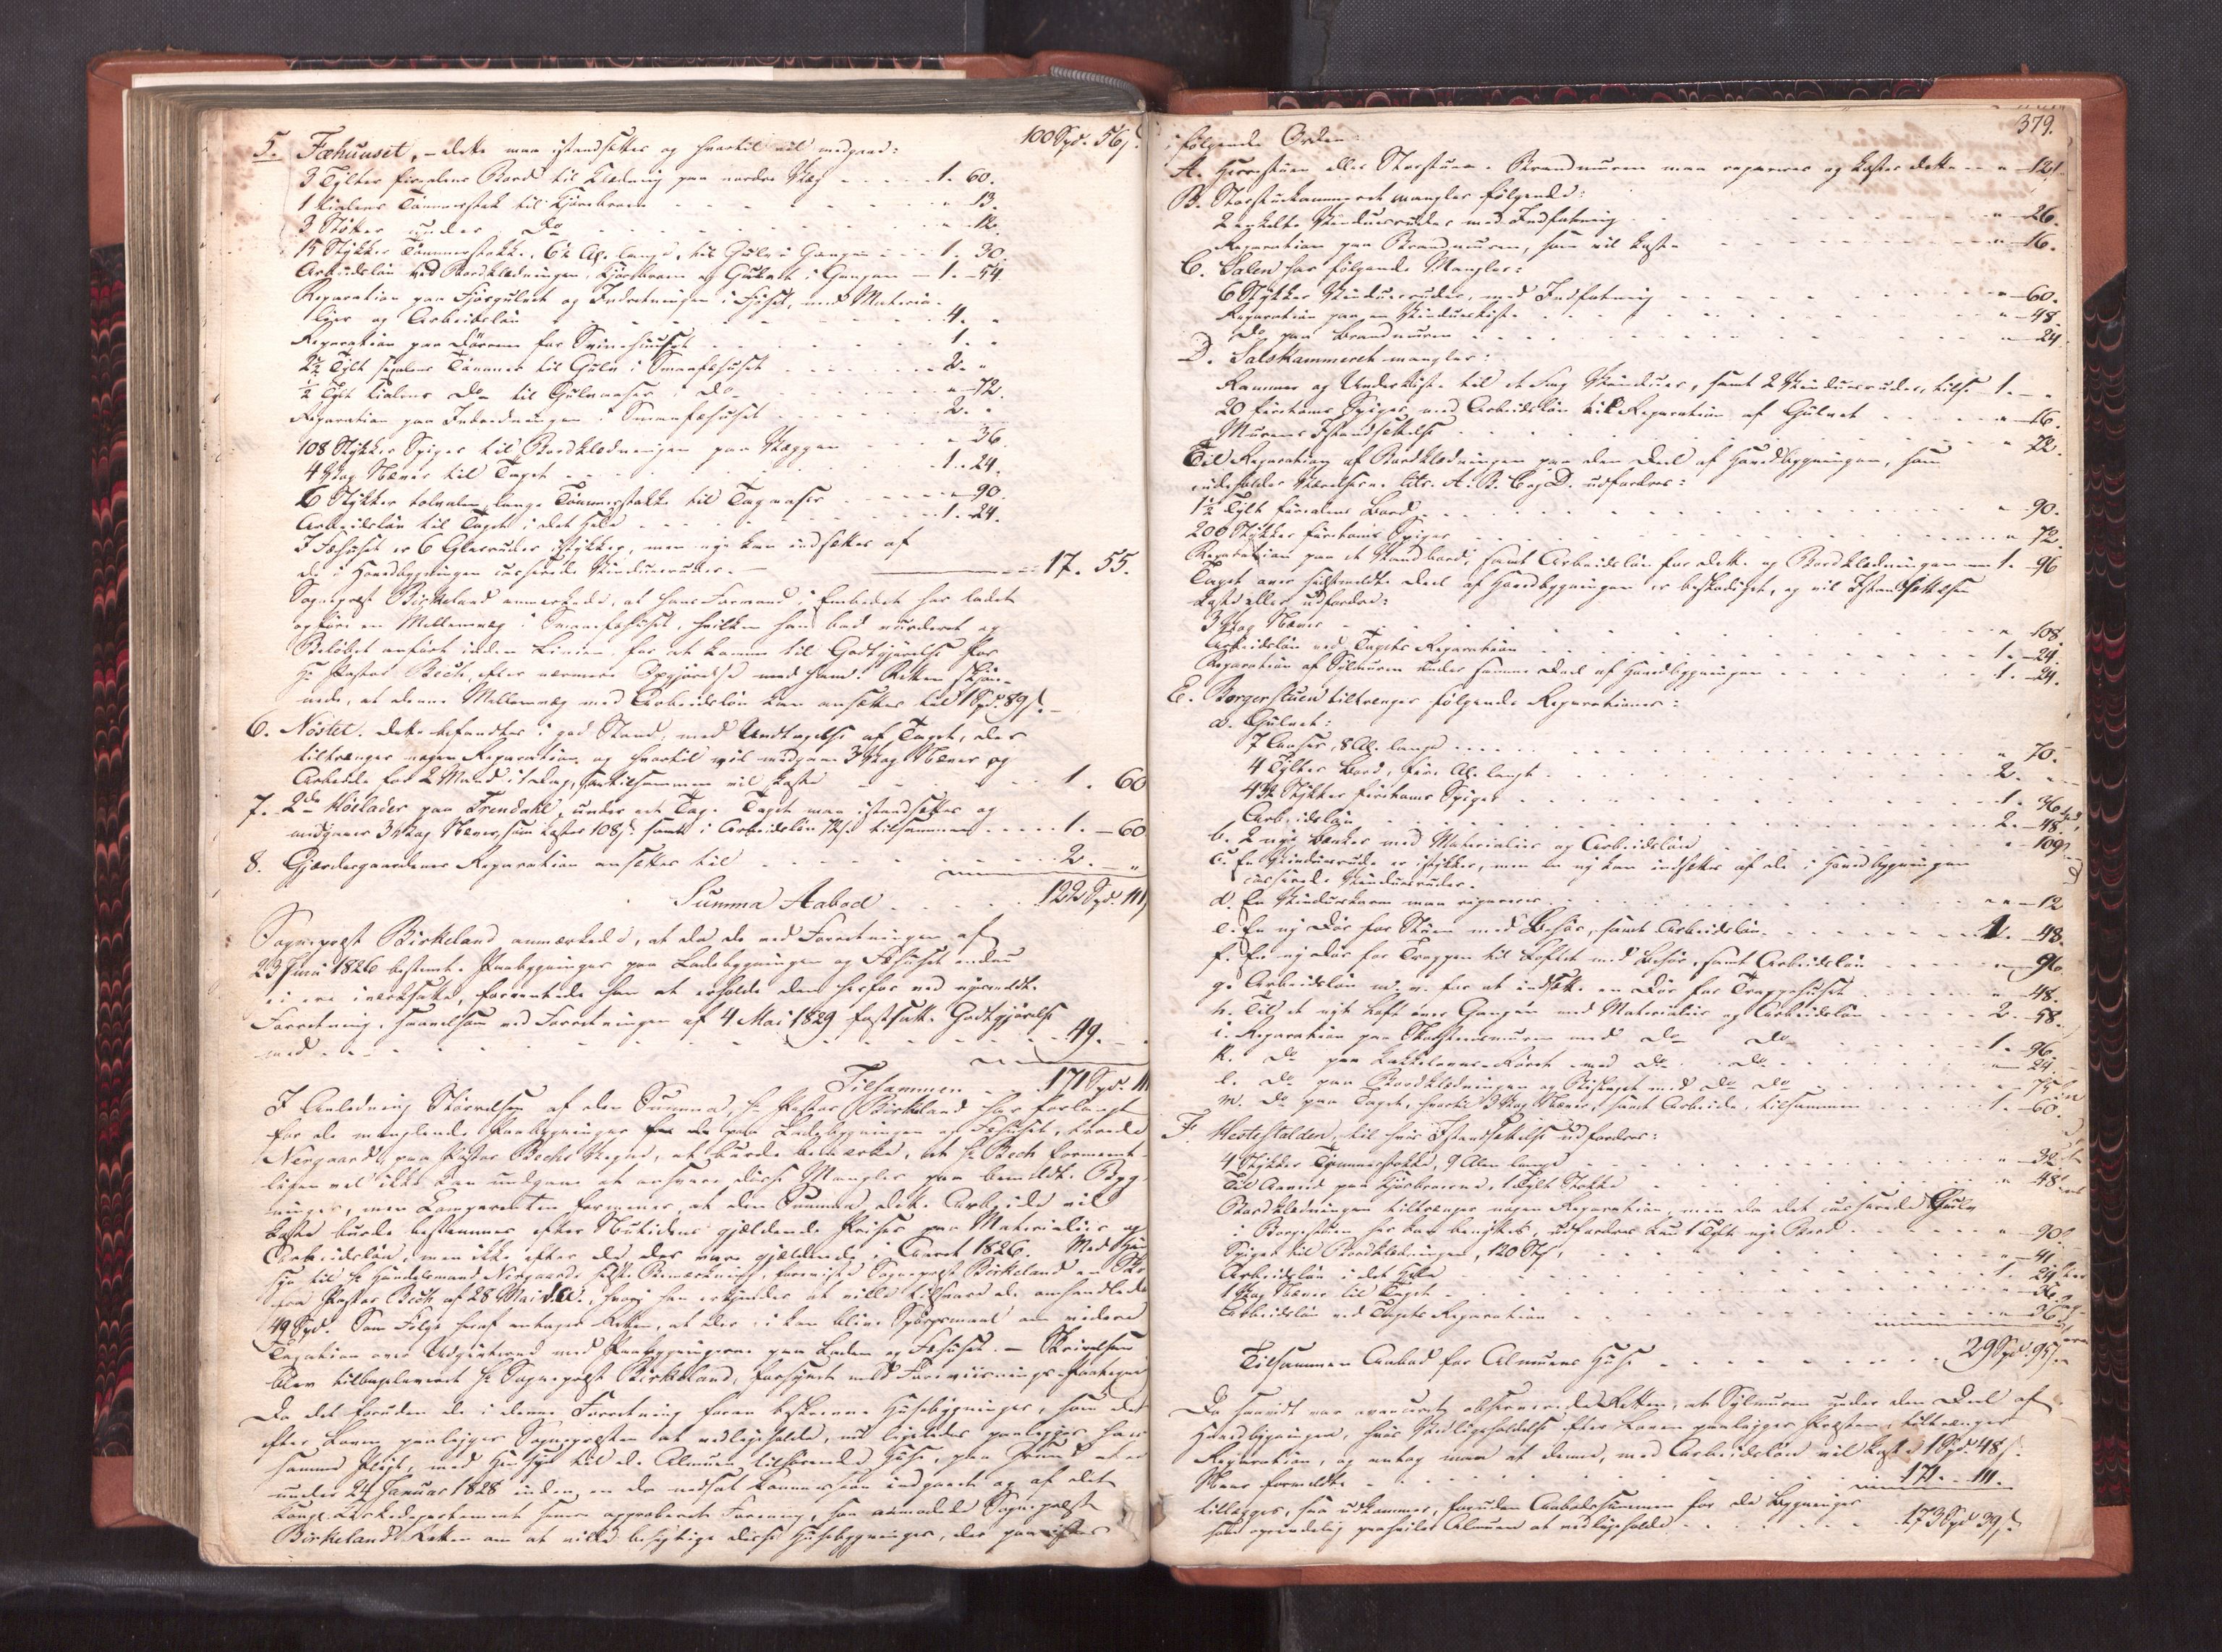 100 Spd. 56 s.
5. Fæhuuset, – dette maa istandsettes og hvortil vil medgaae:
3 Tylter fiiralens Bord til Klædning paa nordre Væg - - - - 1. 60.
1 tialens Tømmerstok - - - - " 13.
3 Støtter under Do - - - - " 12.
15 Stykker Tømmerstokke, 6½ Al. lange, til Gulv i Gangen - - - 1. 30.
Arbeidsløn ved Bordklædningen, og Gulvet i Gangen - 1. 54.
Reparation paa Fjøsgulvet og Indretningen i Fjøset, med Materia-
lier og Arbeidsløn - - - - 4. "
Reparation paa Dørene for Sviinehuuset - - - - 1. "
2½ Tylt Tømmer til Gulv i Smaafæhuset - - - - 2. "
½ Tylt tialens Do til Gulvaaser i Do - - - - " 72.
Reparation paa Indredningen i Smaafæhuset - - - - 2. "
108 Stykker Spiger til Bordklædningen paa Væggen - - - - " 36.
4 Vog Næver til Taget - - - - 1. 24.
6 Stykker tolvalen lange Tømmerstokke til Tagaaser - - - - " 90.
Arbeidsløn til Taget i det Hele - - - - 1. 24.
I Fæhuset er 6 Glasruder istykker, men nye kan indsættes af
de i Hovedbygningen casserede Vinduesruder. – 17. 55.
Sognepræst Birkeland anmærkede, at hans Formand i Embedet har ladet
opføre en Mellemvæg i Smaafæhuset, hvilken han bad vurderet og
Beløbet anført inden Linien, for at komme til Godtgjørelse for
Hr. Pastor Bech, efter nærmere Opgjørelse med ham. Retten skjøn-
nede, at denne Mellemvæg med Arbeidsløn kan ansættes til 1 Spd. 89 s. –
6. Nøstet. dette befandtes i god Stand, med Undtagelse af Taget, der
tiltrænger nogen Reparation, og hvortil vil medgaae 3 Vog Næver og
Arbeide for 2 Mand i 1 Dag, som tilsammen vil koste - - - - 1. 60
7. 2de Høelader paa Trendate, under eet Tag. Taget maa istandsættes og
medgaaer 3 Vog Næver, som koster 108 s. samt i Arbeidsløn tilsammen - - - 1. – 60
8. Gjærdesgaardenes Reparation ansættes til - - - - 2. "
Summa Aabod - - - - 122 Spd. 111
Sognepræst Birkeland anmærkede, at da de ved Forretningen af
23 Juni 1826 bestemte Paabygninger paa Ladebygningen og Fæhuset endnu
ei ere iværksatte, formentede han at erholde den herfor ved
Forretning, saavelsom ved Forretningen af 4 Mai 1829 fastsatte Godtgjørelse
med - - - - 49. –
Tilsammen - - 171 Spd. 111
I Anledning Størrelsen af den Summa, Hr. Pastor Birkeland har forlangt
for de manglende Paabygninger paa Ladebygningen og Fæhuset, troede
Nergaard, paa Pastor Bechs Vegne, at burde bemærke, at Hr. Bech formeent-
ligen vel ikke kan undgaae at ansvare disse Mangler paa bemeldte Byg-
ninger, men Comparenten formener, at den Summa, dette Arbeide vil
koste burde bestemmes efter Nutidens gjældende Priser paa Materialier og
Arbeidsløn, men ikke efter de, der vare gjældende i Aaret 1826. Med Hen-
syn til Hr. Handelsmand Nergaards sidste Bemærkning, foreviste Sognepræst Birkeland en
fra Pastor Bech af 28 Mai d. A., hvori han erkjender at ville tilsvare de omhandlede
49 Spd. Som Følge heraf antager Retten, at der ei kan blive Spørgsmaal om videre
Taxation over Udgifterne med Paabygningerne paa Laden og Fæhuset. – Skrivelsen
blev tilbageleveret Hr. Sognepræst Birkeland, forsynet med Foreviisnings-Paategning.
Da det foruden de i denne Forretning foran beskrevne Huusbygninger, som det
efter Loven paaligger Sognepræsten at vedligeholde, nu ligeledes paaligger ham
samme Pligt, med Hensyn til de Almuen tilhørende Huse, paa Grund af en
under 24 Januar 1828 inden en da nedsat Commission indgaaet og af det
Kongl. Kirkedepartement senere approberet Forening, saa anmodede Sognepræst
Birkeland Retten om at ville besigtige disse Huusbygninger, der
379.
i følgende Orden:
A. Herrestuen eller Storstuen. Brandmuren maa repareres og koster dette - - " – 121.
B. Storstuekammeret mangler følgende:
2 enkelte Vinduesruder med Indfatning - - - - " – 26.
Reparation paa Brandmuren, som vil koste - - - - " – 16.
C. Salen har følgende Mangler:
6 Stykker Vinduesruder, med Indfatning - - - - " – 60.
Reparation paa en Vindueskarm - - - - " – 48.
Do paa Brandmuren - - - - " – 24.
D. Salskammeret mangler:
Rammer og til et Fag Vinduer, samt 2 Vinduesruder, tils. 1. – "
20 Spiger, med Arbeidsløn til Reparation af Gulvet - - - " – 16.
Murens Istandsættelse - - - - " 72.
Til Reparation af Bordklædningen paa den Deel af Hovedbygningen, som
indeholder Værelserne Litr. A. B. C og D. udfordres:
1½ Tylt fiiralens Bord - - - - " 90.
200 Stykker Spiger - - - - " 72.
Reparation paa et Vandbord, samt Arbeidsløn for dette og Bordklædningen - 1. – 96
Taget over sidstmeldte Deel af Hovedbygningen er beskadiget, og vil Istandsættelsen
koste eller udfordre:
3 Vog Næver - - - - " 108
Arbeidsløn ved Tagets Reparation - - - - 1. – 24.
Reparation af Sylmuren under samme Deel af Hovedbygningen - - - - 1. 24.
E. Borgerstuen tiltrænger følgende Reparationer:
a. Gulvet:
7 Aaser, 8 Al. lange - - - - " 70.
4 Tylter Bord, fire Al. langt - - - - 2. "
432 Stykker Spiger - - - - 1. 36
Arbeidsløn - - - - 2. – 48.
b. 2 nye Bænker med Materialier og Arbeidsløn - - - - " 109
c. En Vinduesrude er istykker, men en ny kan indsættes af de i Hovedbygningen
casserede Vinduesruder.
d. En Vindueskarm maa repareres - - - - " – 12
e. En ny Dør for Stuen med Behør, samt Arbeidsløn - - - - 1. – 48.
f. En ny Dør for Trappen til Loftet med Behør, samt Arbeidsløn - - - - " 96.
g. Arbeidsløn m. v. for at indsætte en Dør for Trappehuset - - - - " – 48.
h. Til et nyt Loft over Gangen med Materialier og Arbeidsløn - - - - 2. – 58.
i. Reparation paa Skorsteensmuren med Do Do - - - - 1. 96.
k. Do paa Kakkelovns-Røret med Do Do - - - - " – 24.
l. Do paa Bordklædningen og med Do Do - - - - " 75
m. Do paa Taget, hvortil 3 Vog Næver, samt Arbeide, tilsammen - - - - 1. – 60.
F. Hestestalden, til hvis Istandsættelse udfordres:
4 Stykker Tømmerstokke, 9 Alen lange - - - - " – 32
Til paa, 1 Tylt Stokke - - - - " – 48
Bordklædningen tiltrænger nogen Reparation, men da det casserede Gulv
i Borgestuen her kan benyttes, udfordres kun 1 Tylt nye Bord - - - - " – 90
Spiger til Bordklædningen, 120 Stk. - - - - " – 41.
Arbeidsløn i det Hele - - - - 1. 24
1 Vog Næver til Taget - - - - " – 36.
Arbeidsløn ved Tagets Reparation - - - - " – 36
Tilsammen Aabod for Almuens Huse - - - - 29 Spd. 95 s.
Da saavidt var avanceret, observerede Retten, at Sylmuren under den Deel af
Hovedbygningen, hvis Vedligeholdelse efter Loven paaligger Præsten, tiltrænger
Reparation, og antog man at denne, med Arbeidsløn vil koste 1 Spd. 48 s.
Naar formeldte - - - - 171. – 111.
tillægges, saa udkommer, foruden Aabodssummen for de Bygninger
som oprindelig Almuen at vedligeholde - - - - 173 Spd. 39 s.